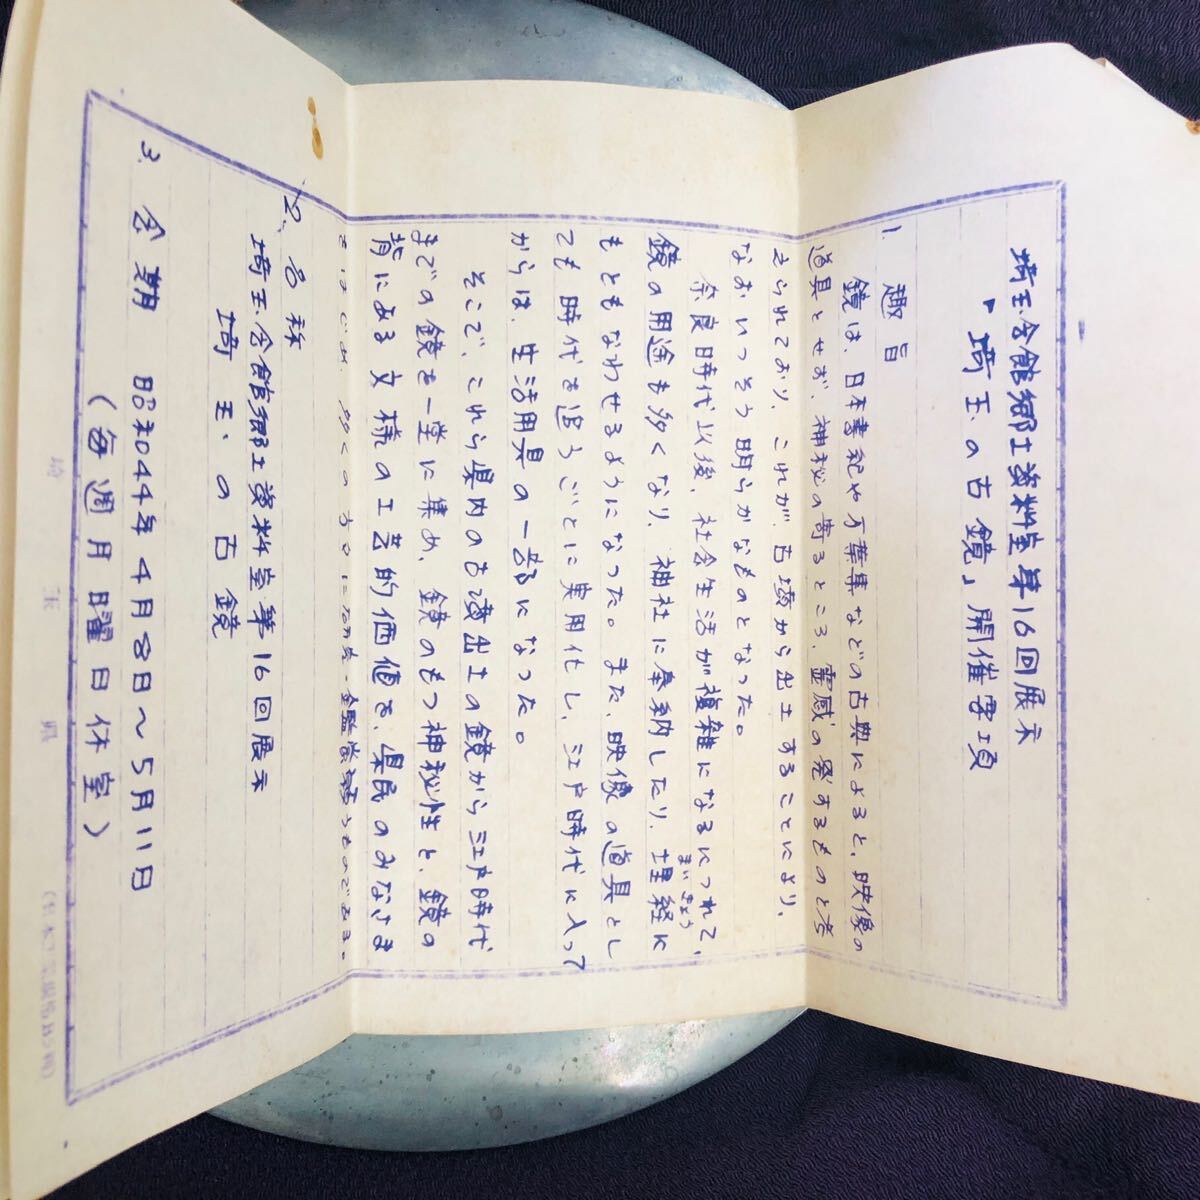 埼玉会館郷土資料室第16回展示
「埼玉の古鏡」開催要項
1. 趣旨
鏡は、日本書紀や万葉集などの古典によると、映像の
道具とせず、神秘の宿るところ、霊感の発するものと考
えられており、これが、古墳から出土することにより、
なおいっそう明らかなものとなった。
奈良時代以後、社会生活が複雑になるにつれて、
鏡の用途も多くなり、神社に奉納したり、埋経に
まいきょう
もともなわせるようになった。また、映像の道具とし
ても時代を追うごとに実用化し、江戸時代に入って
からは、生活用具の一部になった。
そこで、これら県内の古墳出土の鏡から江戸時代
までの鏡を一堂に集め、鏡のもつ神秘性と、鏡の
背による文様の工芸的価値を、県民のみなさま
をはじめ、多くの方々に
ものである。
2. 名称
埼玉会館郷土資料室第16回展示
埼玉の古鏡
3. 会期 昭和44年4月8日～5月11日
(毎週月曜日休室)
埼玉県